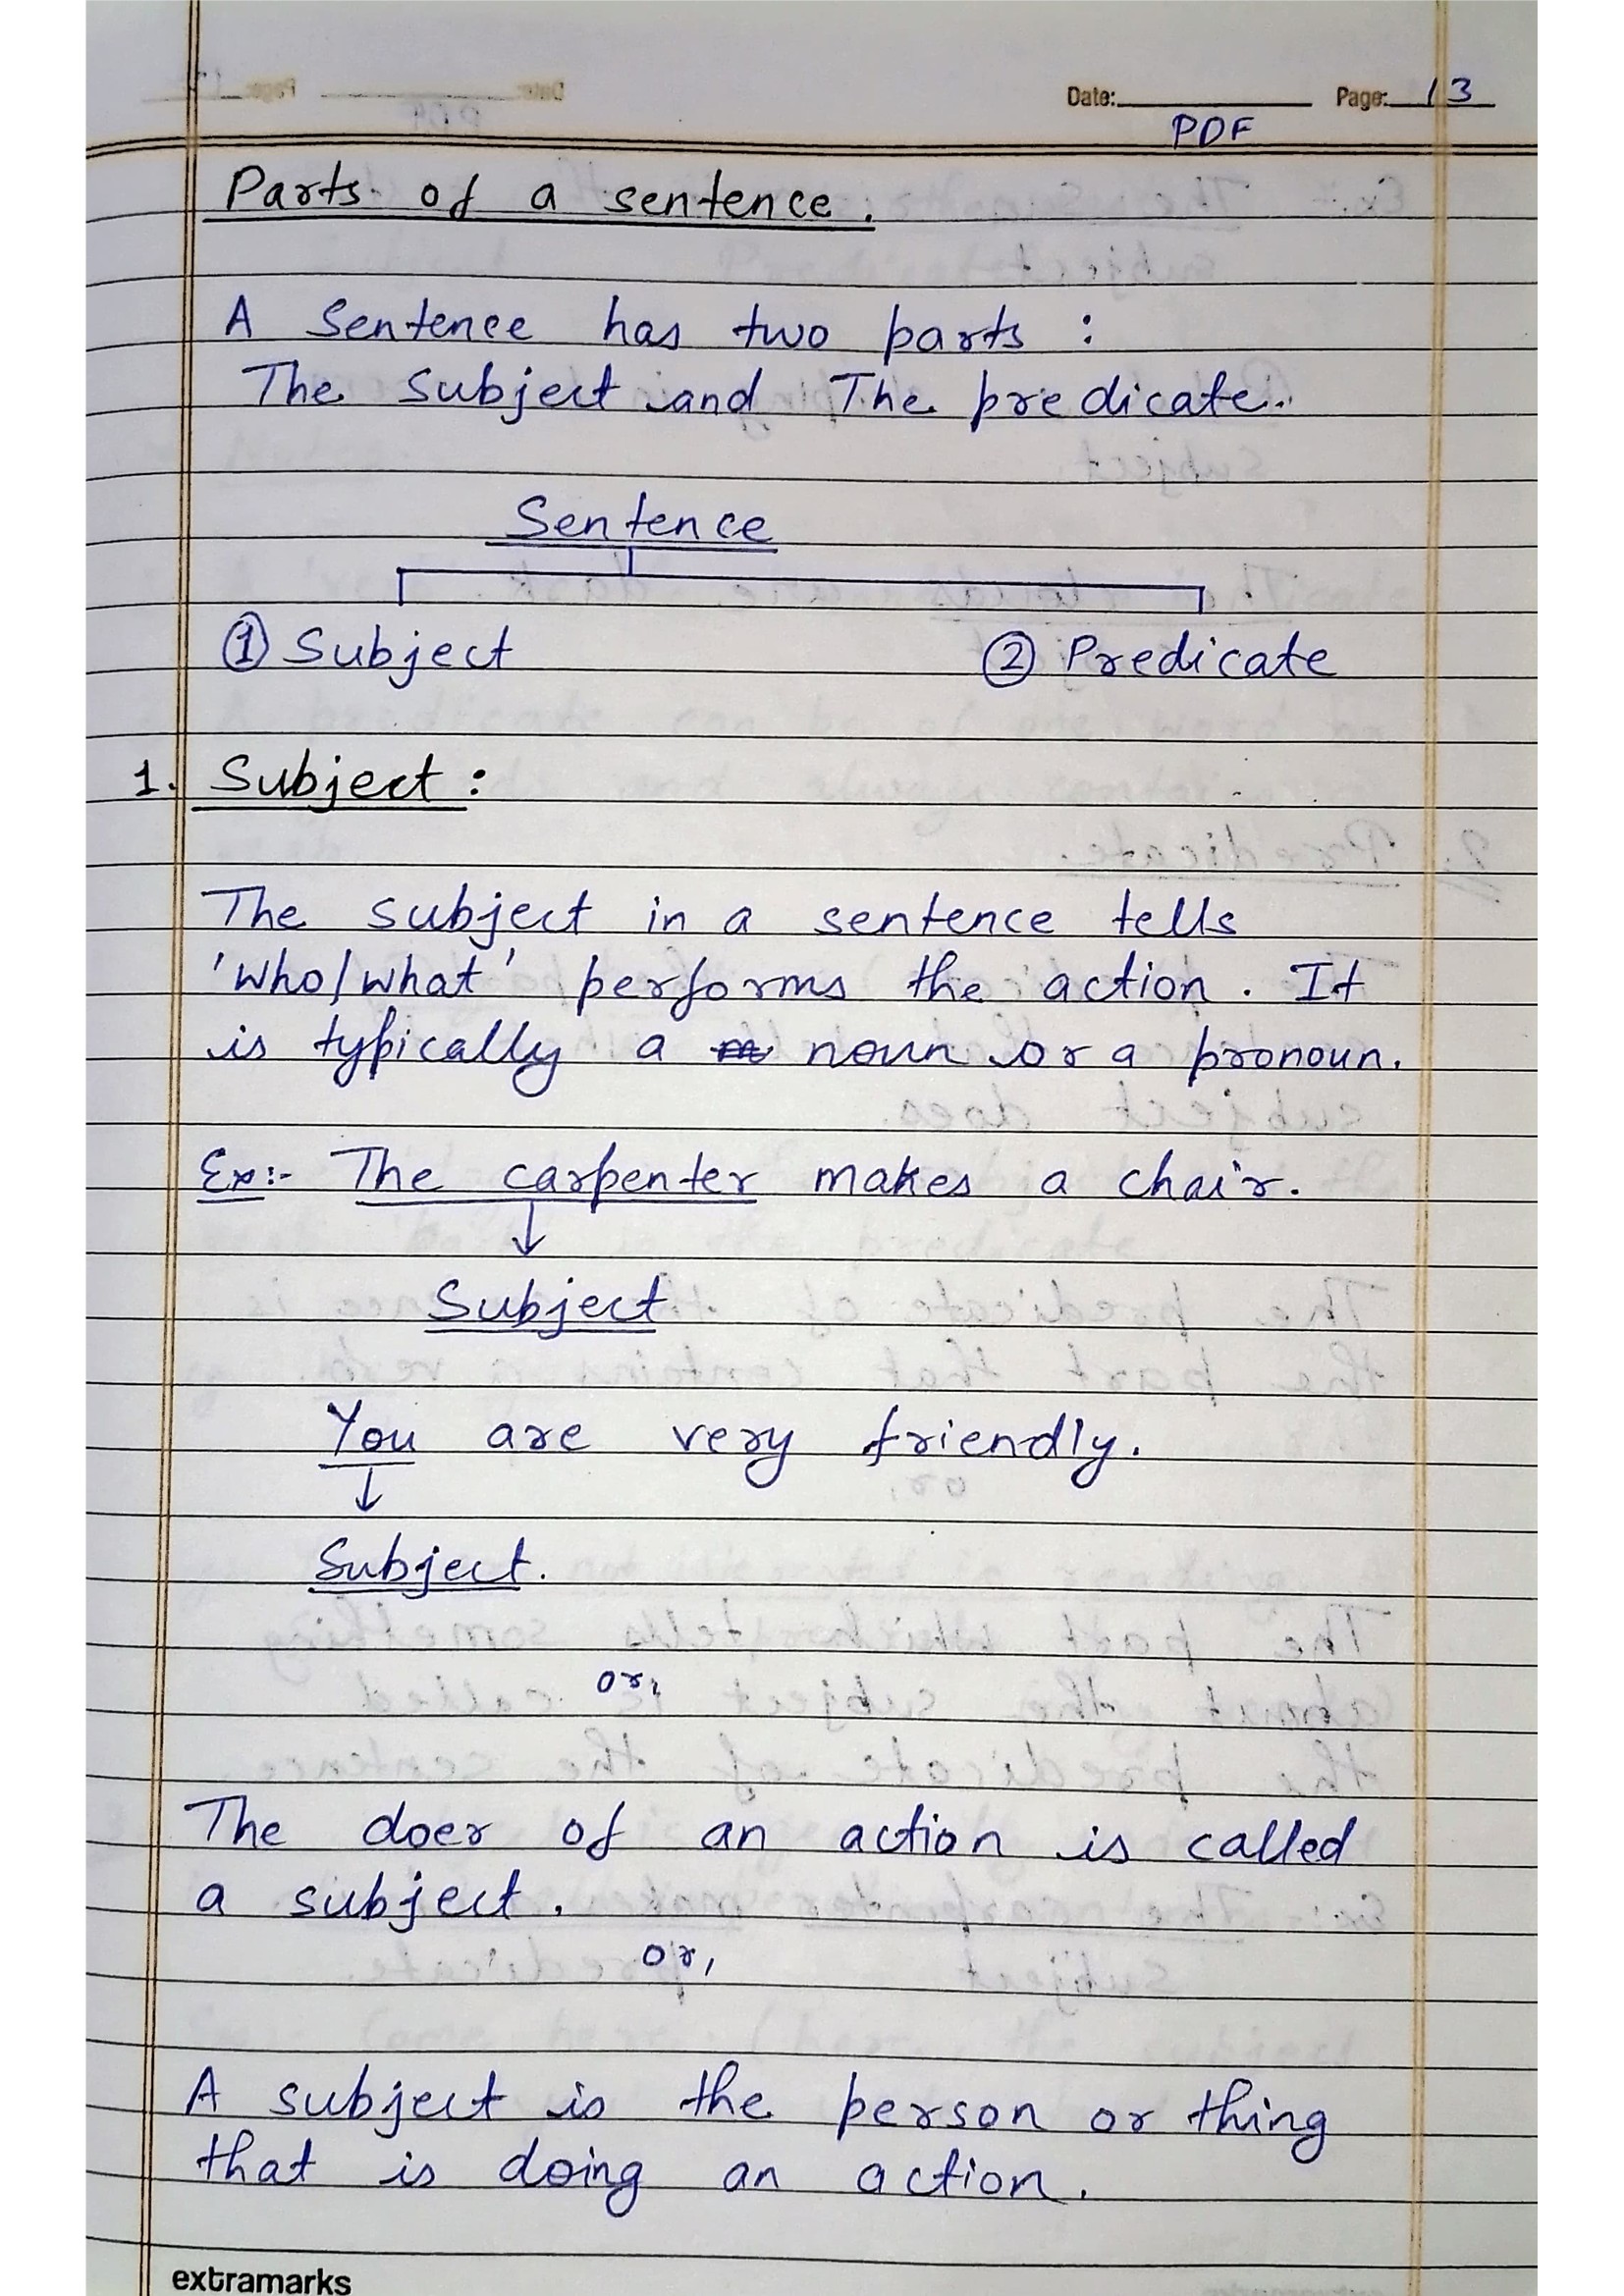 Date: Page: 13
PDF
Parts of a sentence.
A Sentence has two parts :
The subject and The predicate.
Sentence
① Subject ② Predicate
1. Subject :
The subject in a sentence tells
'who/what' performs the action. It
is typically a noun or a pronoun.
Ex:- The carpenter makes a chair.
Subject
You are very friendly.
Subject.
or,
The doer of an action is called
a subject.
or,
A subject is the person or thing
that is doing an action.
extramarks